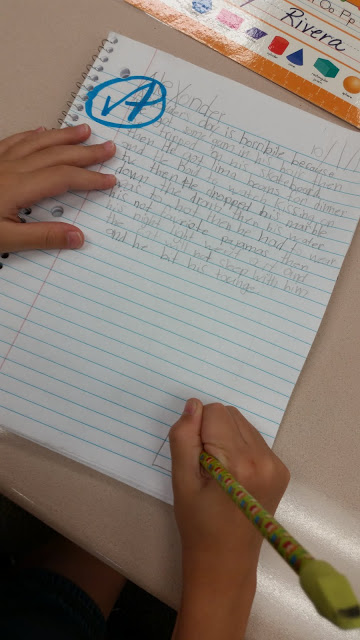 Oo Pp
Rivera
Alexander
day is horribile because
gum in his
tripped on his skateboard
then He got lima beans for dinner
and he had to watch kissing on
tv. then the dropped his marble
down the drain then his water
to hot then he had to wear
his not favorite pajamas then
the night light went out and
the cat did not sleep with him
and he bit his tounge.